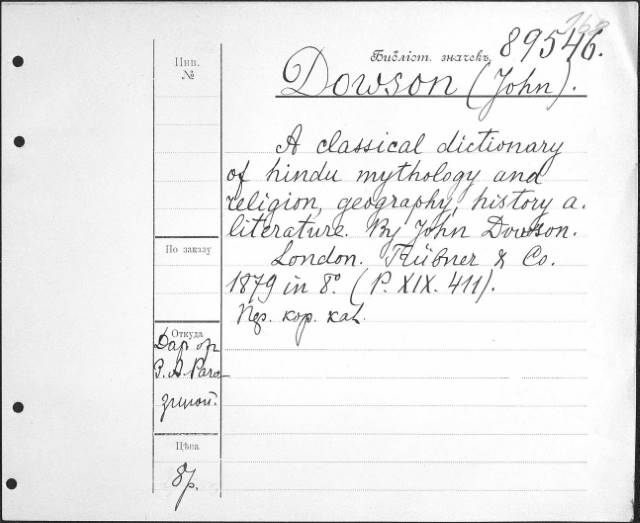 Библіот. значекъ 89546.
Инв.
№
Dowson (John).
A classical dictionary
of hindu mythology and
religion, geography, history a.
literature. By John Dowson.
London. Trübner & Co.
1879 in 8.º (P. XIX. 411).
По заказу
кор. кат.
Откуда
Дар от
Цѣна
8р.